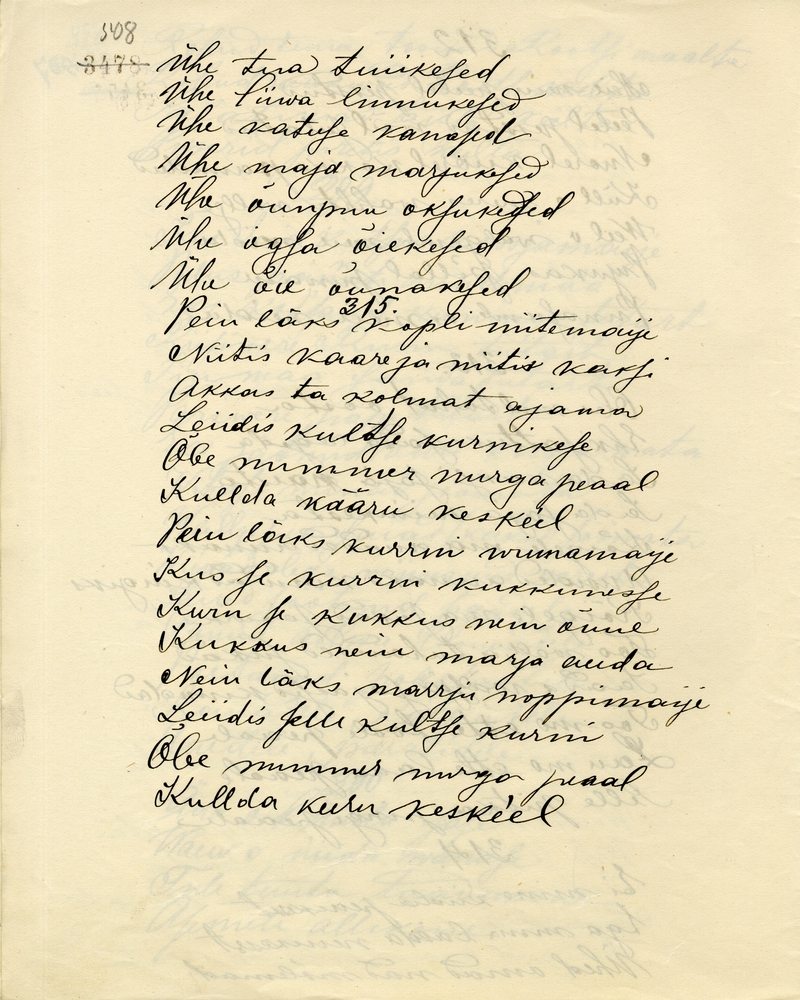 508
3478
Ühe tua tuiikesed
Ühe liiwa linnukesed
Ühe katuse kanased
Ühe maja marjukesed
Ühe õunpuu oksukesed
Ühe ogsa õiekesed
Ühe õie õunaksed
315.
Pein läks kopli niitemaije
Niitis kaare ja niitis kaksi
Akkas ta kolmat ajama
Leiidis kultse kurnikese
Õbe nummer nurga peaal
Kullda kääru keskeel
Pein läks kurrni wiinamaije
Kus se kurrni kukkunesse
Kurn se kukkus nein õuue
Kukkus nein marja auda
Nein läks marrju noppimaije
Leiidis selle kultse kurni
Õbe nummer nurga peaal
Kullda keeru keskeel